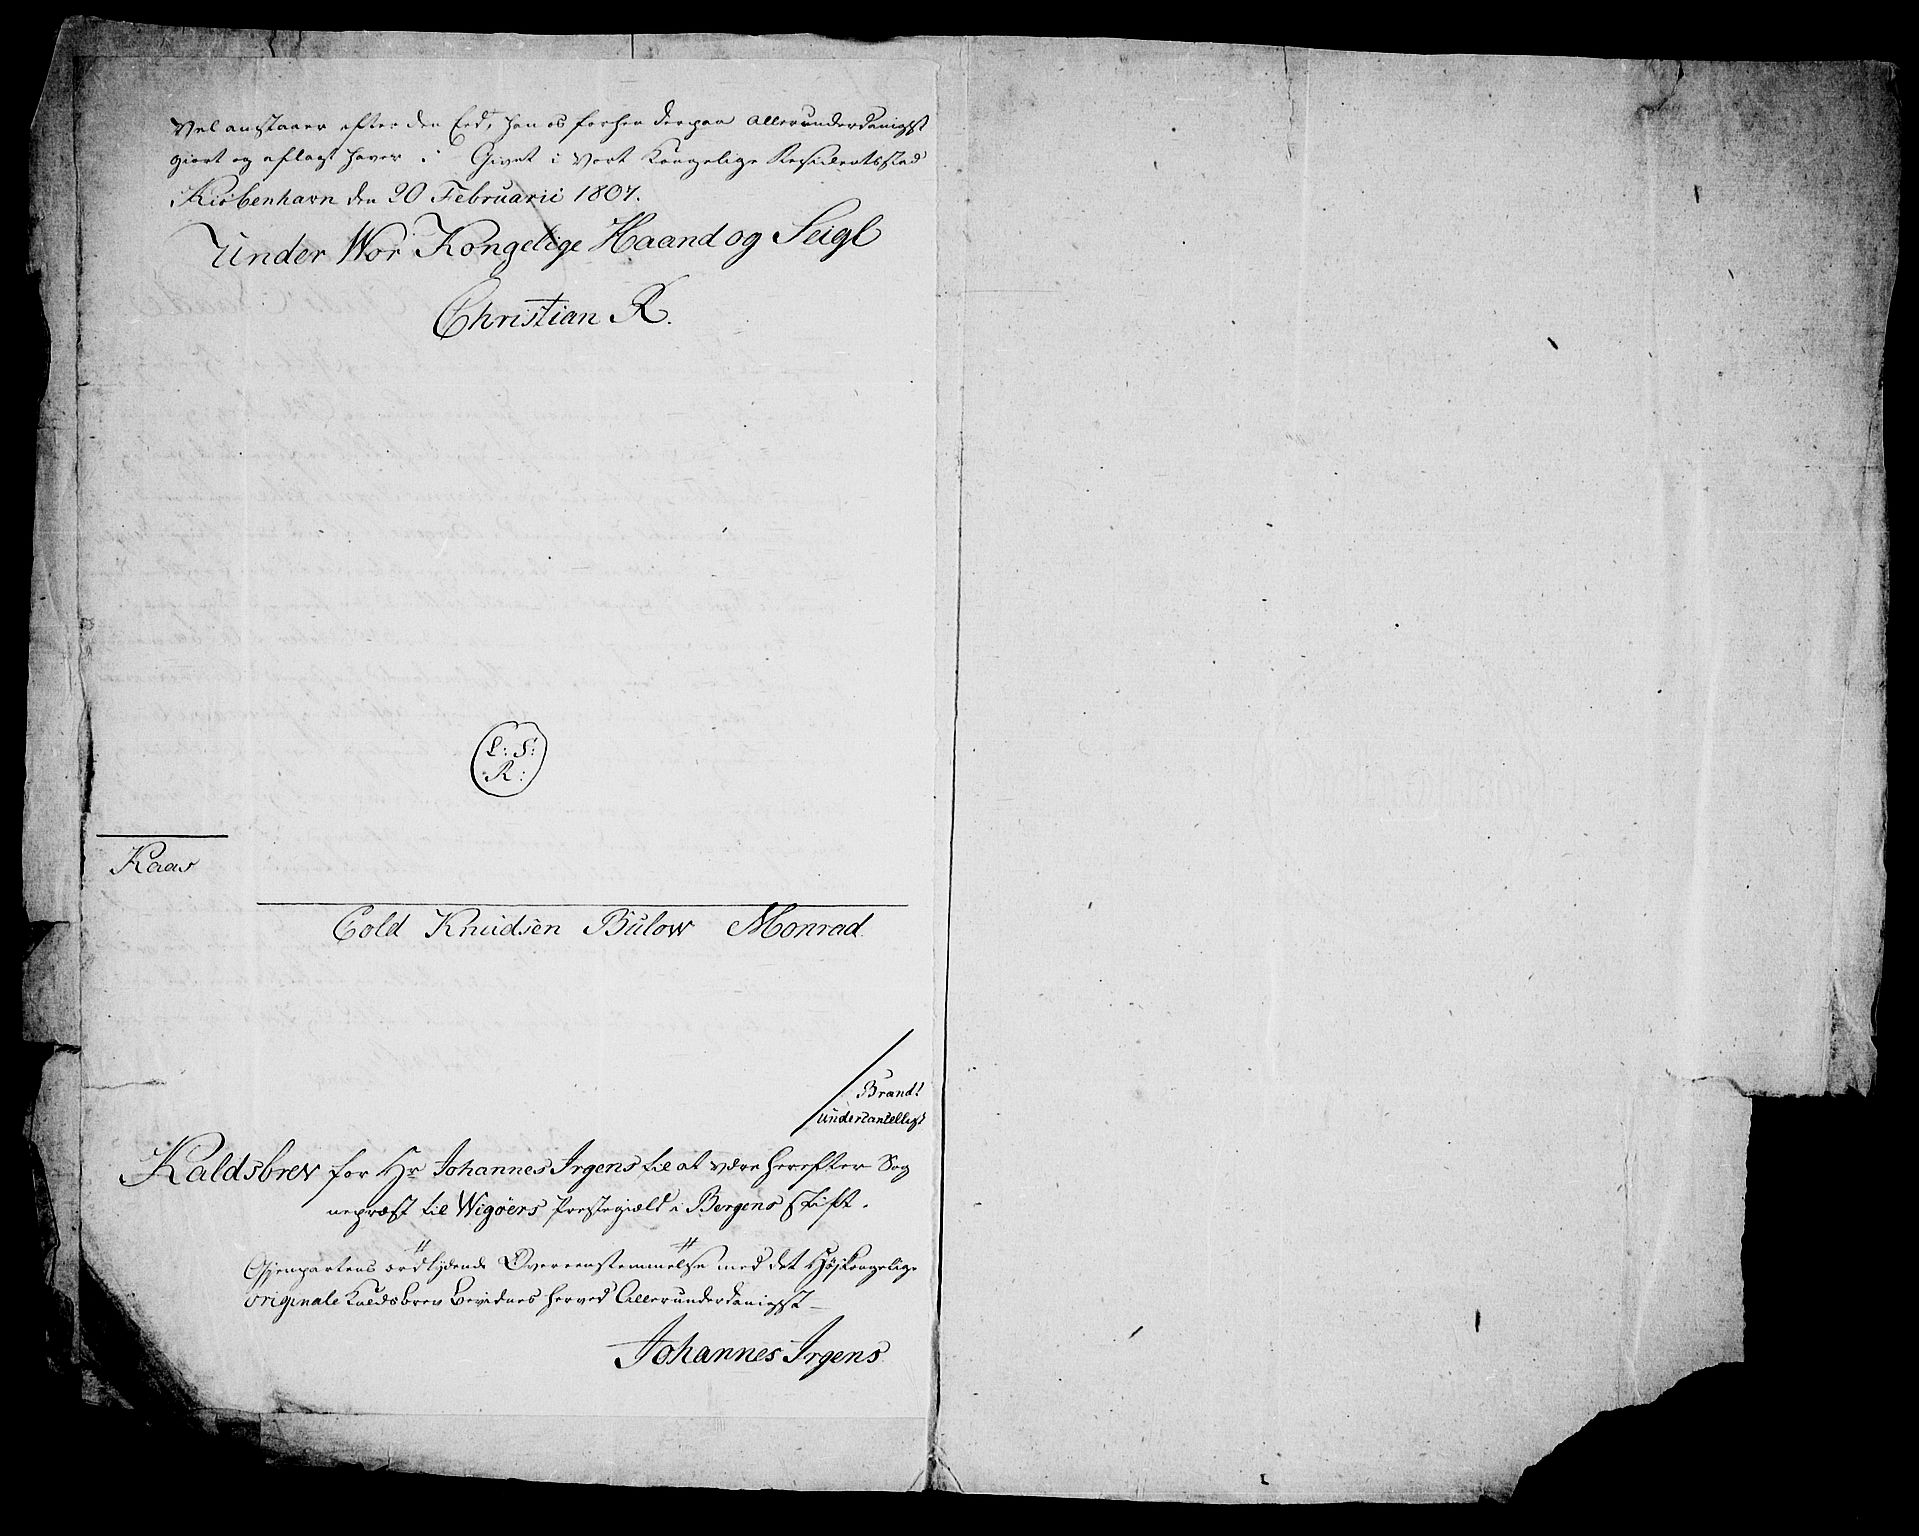 Vel anstaaer efter den Eed, han os forhen derpaa allerunderdanigst
giort og aflagt haver. Givet i Vort Kongelige Residentsstad
Kiöbenhavn den 20 Februarii 1807.
Under Vor Kongelige Haand og Seigl
Christian R.
L: S:
R:
Kaas
Cold Knudsen Bülow Monrad
Brandt
undercantelligst
Kaldsbrev for Hr Johannes Irgens til at være herefter Sog
nepræst til Wigøers Præstegiæld i Bergens Stift.
Gjenpartens ordlydende Overeenstemmelse med det Højkongelige
originale Kaldsbrev bevidnes herved Allerunderdanigst
Johannes Irgens